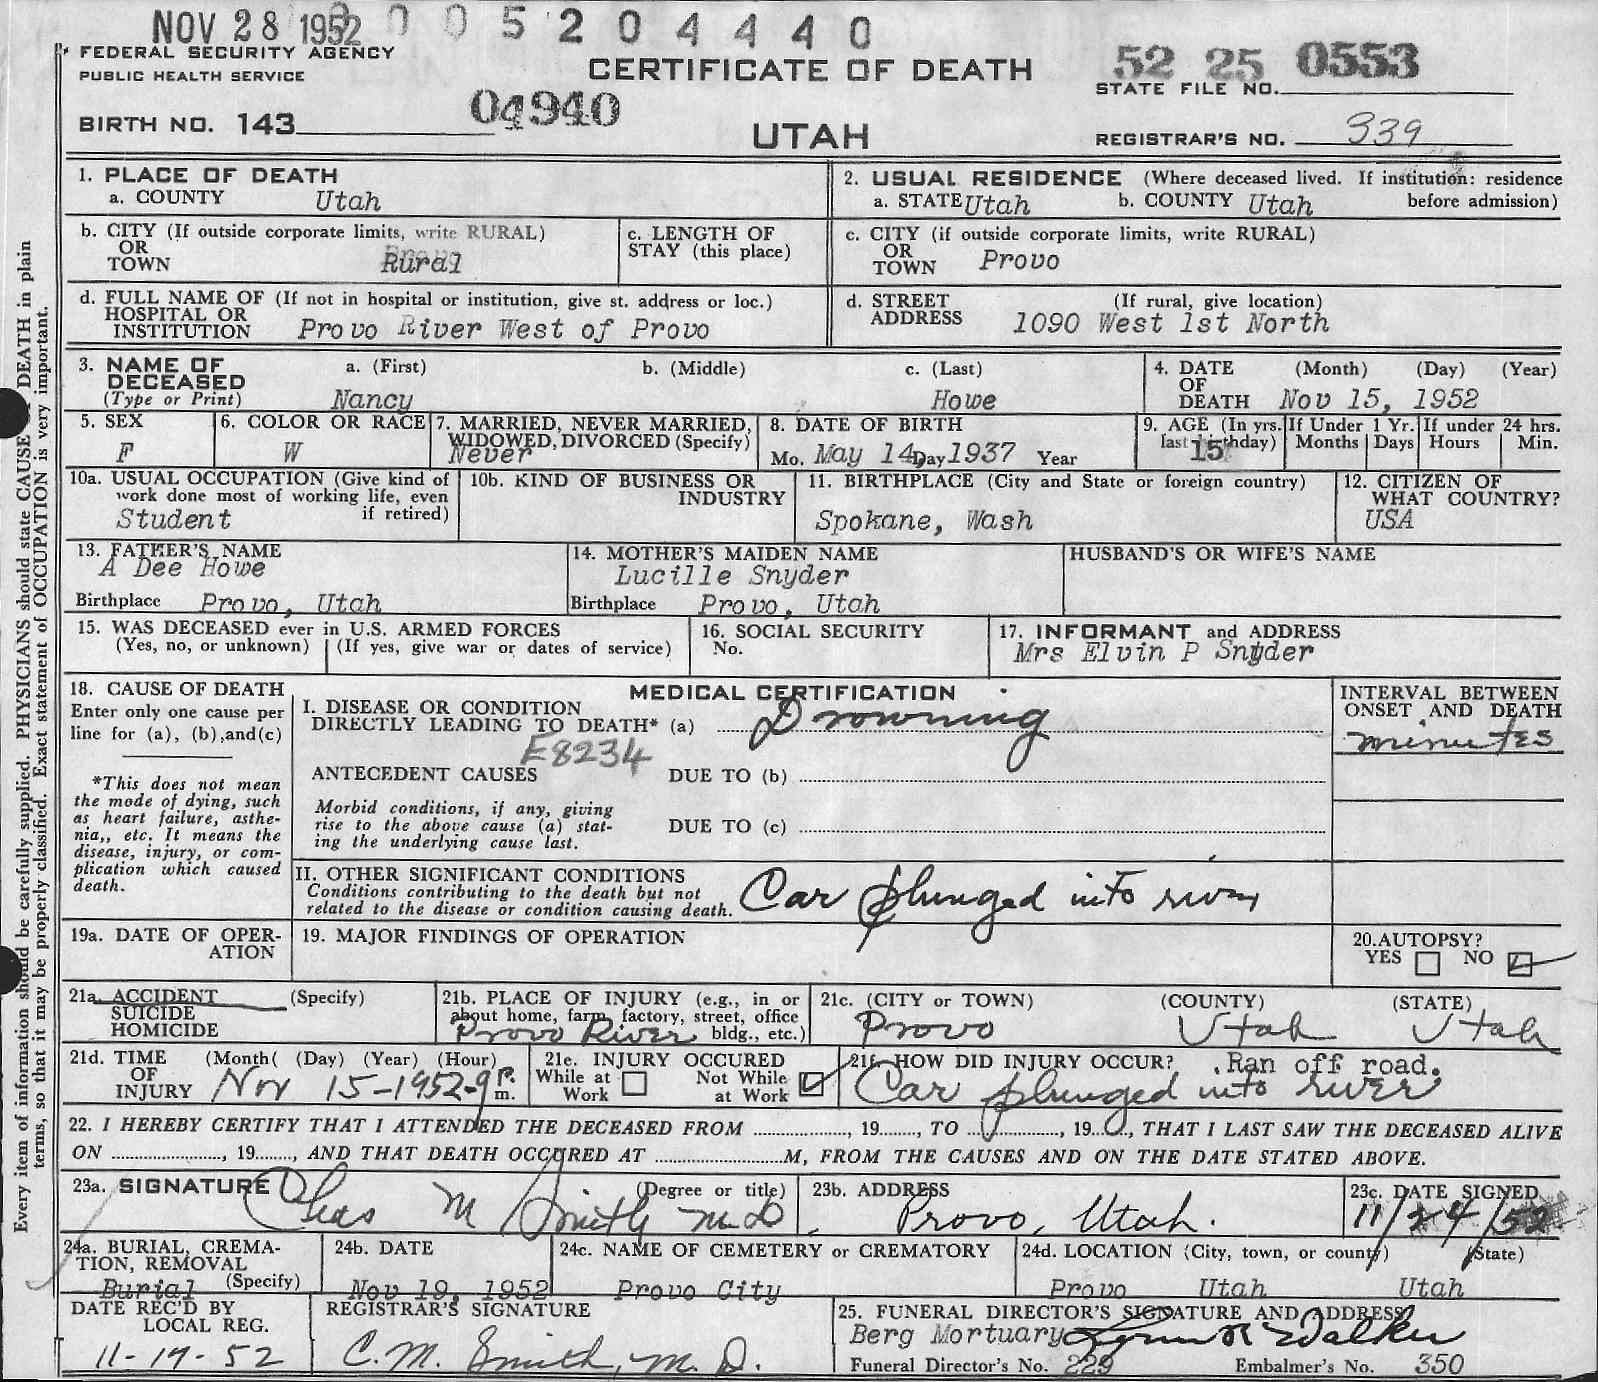 NOV 28 1952 0 0 5 2 0 4 4 4 0
FEDERAL SECURITY AGENCY
PUBLIC HEALTH SERVICE
CERTIFICATE OF DEATH
52 25 0553
STATE FILE NO.
04940
BIRTH NO. 143
UTAH
REGISTRAR'S NO. 339
1. PLACE OF DEATH
a. COUNTY Utah
2. USUAL RESIDENCE (Where deceased lived. If institution: residence before admission)
a. STATE Utah b. COUNTY Utah
b. CITY (If outside corporate limits, write RURAL)
OR
TOWN Rural
c. LENGTH OF
STAY (this place)
c. CITY (if outside corporate limits, write RURAL)
OR
TOWN Provo
d. FULL NAME OF (If not in hospital or institution, give st. address or loc.)
HOSPITAL OR
INSTITUTION Provo River West of Provo
d. STREET (If rural, give location)
ADDRESS 1090 West 1st North
3. NAME OF a. (First) b. (Middle) c. (Last)
DECEASED
(Type or Print) Nancy Howe
4. DATE (Month) (Day) (Year)
OF
DEATH Nov 15, 1952
5. SEX
F
6. COLOR OR RACE
W
7. MARRIED, NEVER MARRIED,
WIDOWED, DIVORCED (Specify)
Never
8. DATE OF BIRTH
Mo. May 14, Day 1937 Year
9. AGE (In yrs. last birthday)
15
If Under 1 Yr.
Months Days
If under 24 hrs.
Hours Min.
10a. USUAL OCCUPATION (Give kind of
work done most of working life, even
if retired)
Student
10b. KIND OF BUSINESS OR
INDUSTRY
11. BIRTHPLACE (City and State or foreign country)
Spokane, Wash
12. CITIZEN OF
WHAT COUNTRY?
USA
13. FATHER'S NAME
A Dee Howe
Birthplace Provo, Utah
14. MOTHER'S MAIDEN NAME
Lucille Snyder
Birthplace Provo, Utah
HUSBAND'S OR WIFE'S NAME
15. WAS DECEASED ever in U.S. ARMED FORCES
(Yes, no, or unknown) (If yes, give war or dates of service)
16. SOCIAL SECURITY
No.
17. INFORMANT and ADDRESS
Mrs Elvin P Snyder
18. CAUSE OF DEATH
Enter only one cause per
line for (a), (b), and (c)
*This does not mean
the mode of dying, such
as heart failure, asthe-
nia,, etc. It means the
disease, injury, or com-
plication which caused
death.
MEDICAL CERTIFICATION
I. DISEASE OR CONDITION
DIRECTLY LEADING TO DEATH* (a) Drowning
E8234
ANTECEDENT CAUSES DUE TO (b)
Morbid conditions, if any, giving
rise to the above cause (a) stat-
ing the underlying cause last.
DUE TO (c)
INTERVAL BETWEEN
ONSET AND DEATH
minutes
II. OTHER SIGNIFICANT CONDITIONS
Conditions contributing to the death but not
related to the disease or condition causing death.
Car plunged into river
19a. DATE OF OPER-
ATION
19. MAJOR FINDINGS OF OPERATION
20. AUTOPSY?
YES NO
21a. ACCIDENT (Specify)
SUICIDE
HOMICIDE
21b. PLACE OF INJURY (e.g., in or
about home, farm, factory, street, office
bldg., etc.)
Provo River
21c. (CITY or TOWN) (COUNTY) (STATE)
Provo Utah Utah
21d. TIME (Month( (Day) (Year) (Hour)
OF
INJURY Nov 15-1952-9 P. m.
21e. INJURY OCCURED
While at Work Not While at Work
21f. HOW DID INJURY OCCUR? Ran off road.
Car plunged into river
22. I HEREBY CERTIFY THAT I ATTENDED THE DECEASED FROM ..............., 19......., TO ..............., 19......, THAT I LAST SAW THE DECEASED ALIVE
ON ..............., 19......., AND THAT DEATH OCCURED AT ..................M, FROM THE CAUSES AND ON THE DATE STATED ABOVE.
23a. SIGNATURE (Degree or title)
Chas M Smith M D
23b. ADDRESS
Provo, Utah.
23c. DATE SIGNED
11/24/52
24a. BURIAL, CREMA-
TION, REMOVAL
(Specify)
Burial
24b. DATE
Nov 19, 1952
24c. NAME OF CEMETERY or CREMATORY
Provo City
24d. LOCATION (City, town, or county) (State)
Provo Utah Utah
DATE REC'D BY
LOCAL REG.
11-19-52
REGISTRAR'S SIGNATURE
C. M. Smith, M. D.
25. FUNERAL DIRECTOR'S SIGNATURE AND ADDRESS
Berg Mortuary Lynn R Walker
Funeral Director's No. 229 Embalmer's No. 350
Every item of information should be carefully supplied. PHYSICIANS should state CAUSE DEATH in plain
terms, so that it may be properly classified. Exact statement of OCCUPATION is very important.